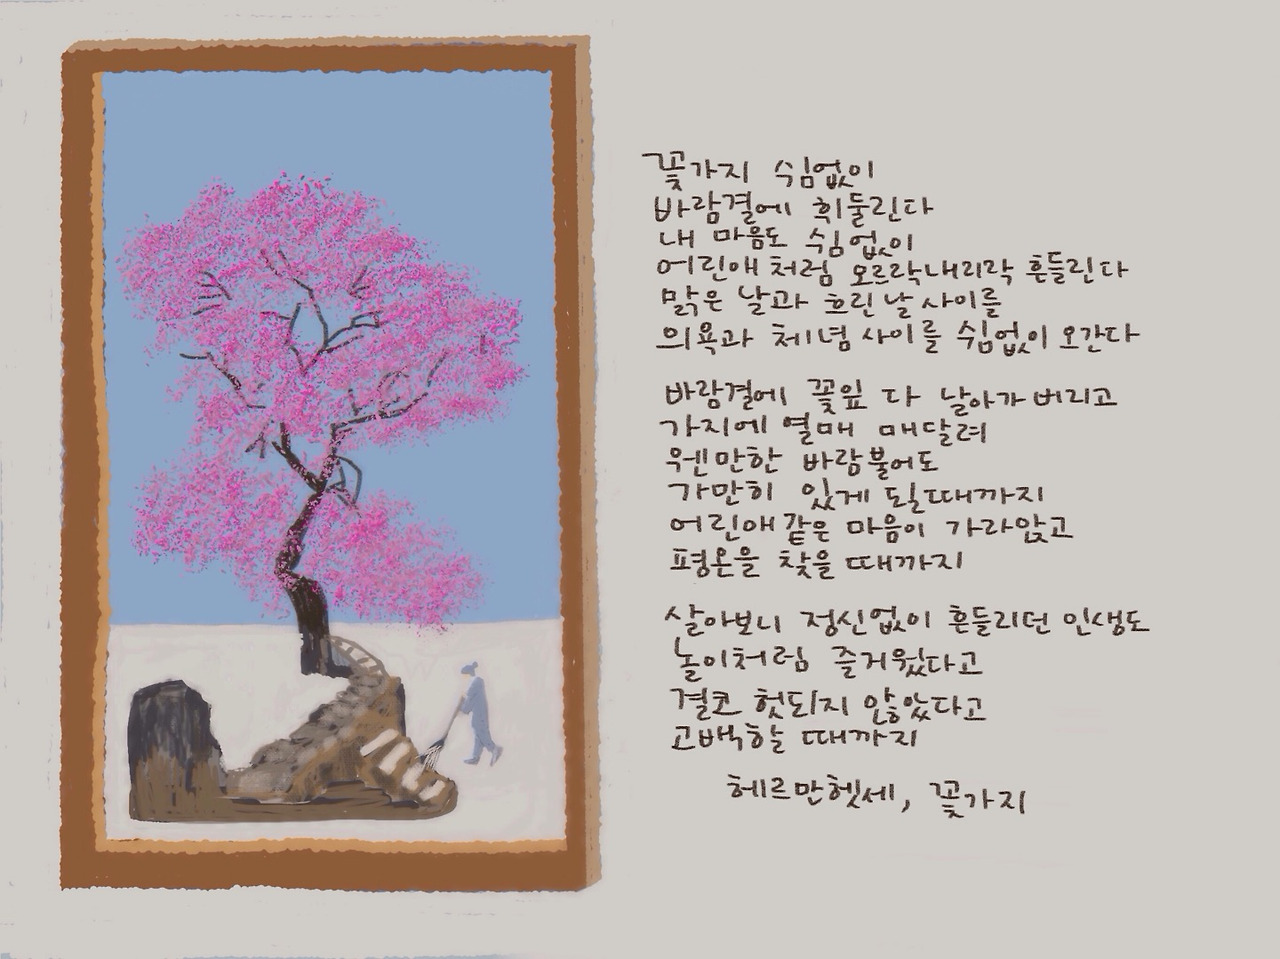 꽃가지 쉼없이
바람결에 휘둘린다
내 마음도 쉼없이
어린애처럼 오르락내리락 흔들린다
맑은 날과 흐린 날 사이를
의욕과 체념 사이를 쉼없이 오간다
바람결에 꽃잎 다 날아가 버리고
가지에 열매 매달려
웬만한 바람불어도
가만히 있게 될때까지
어린애 같은 마음이 가라앉고
평온을 찾을 때까지
살아보니 정신없이 흔들리던 인생도
놀이처럼 즐거웠다고
결코 헛되지 않았다고
고백할 때까지
헤르만헷세, 꽃가지